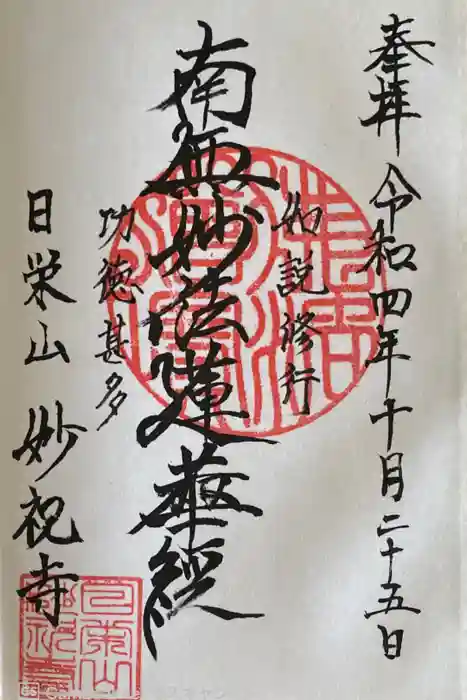 奉拝 令和四年十月二十五日
如説修行
南無妙法蓮華経
功徳甚多
日栄山 妙祝寺